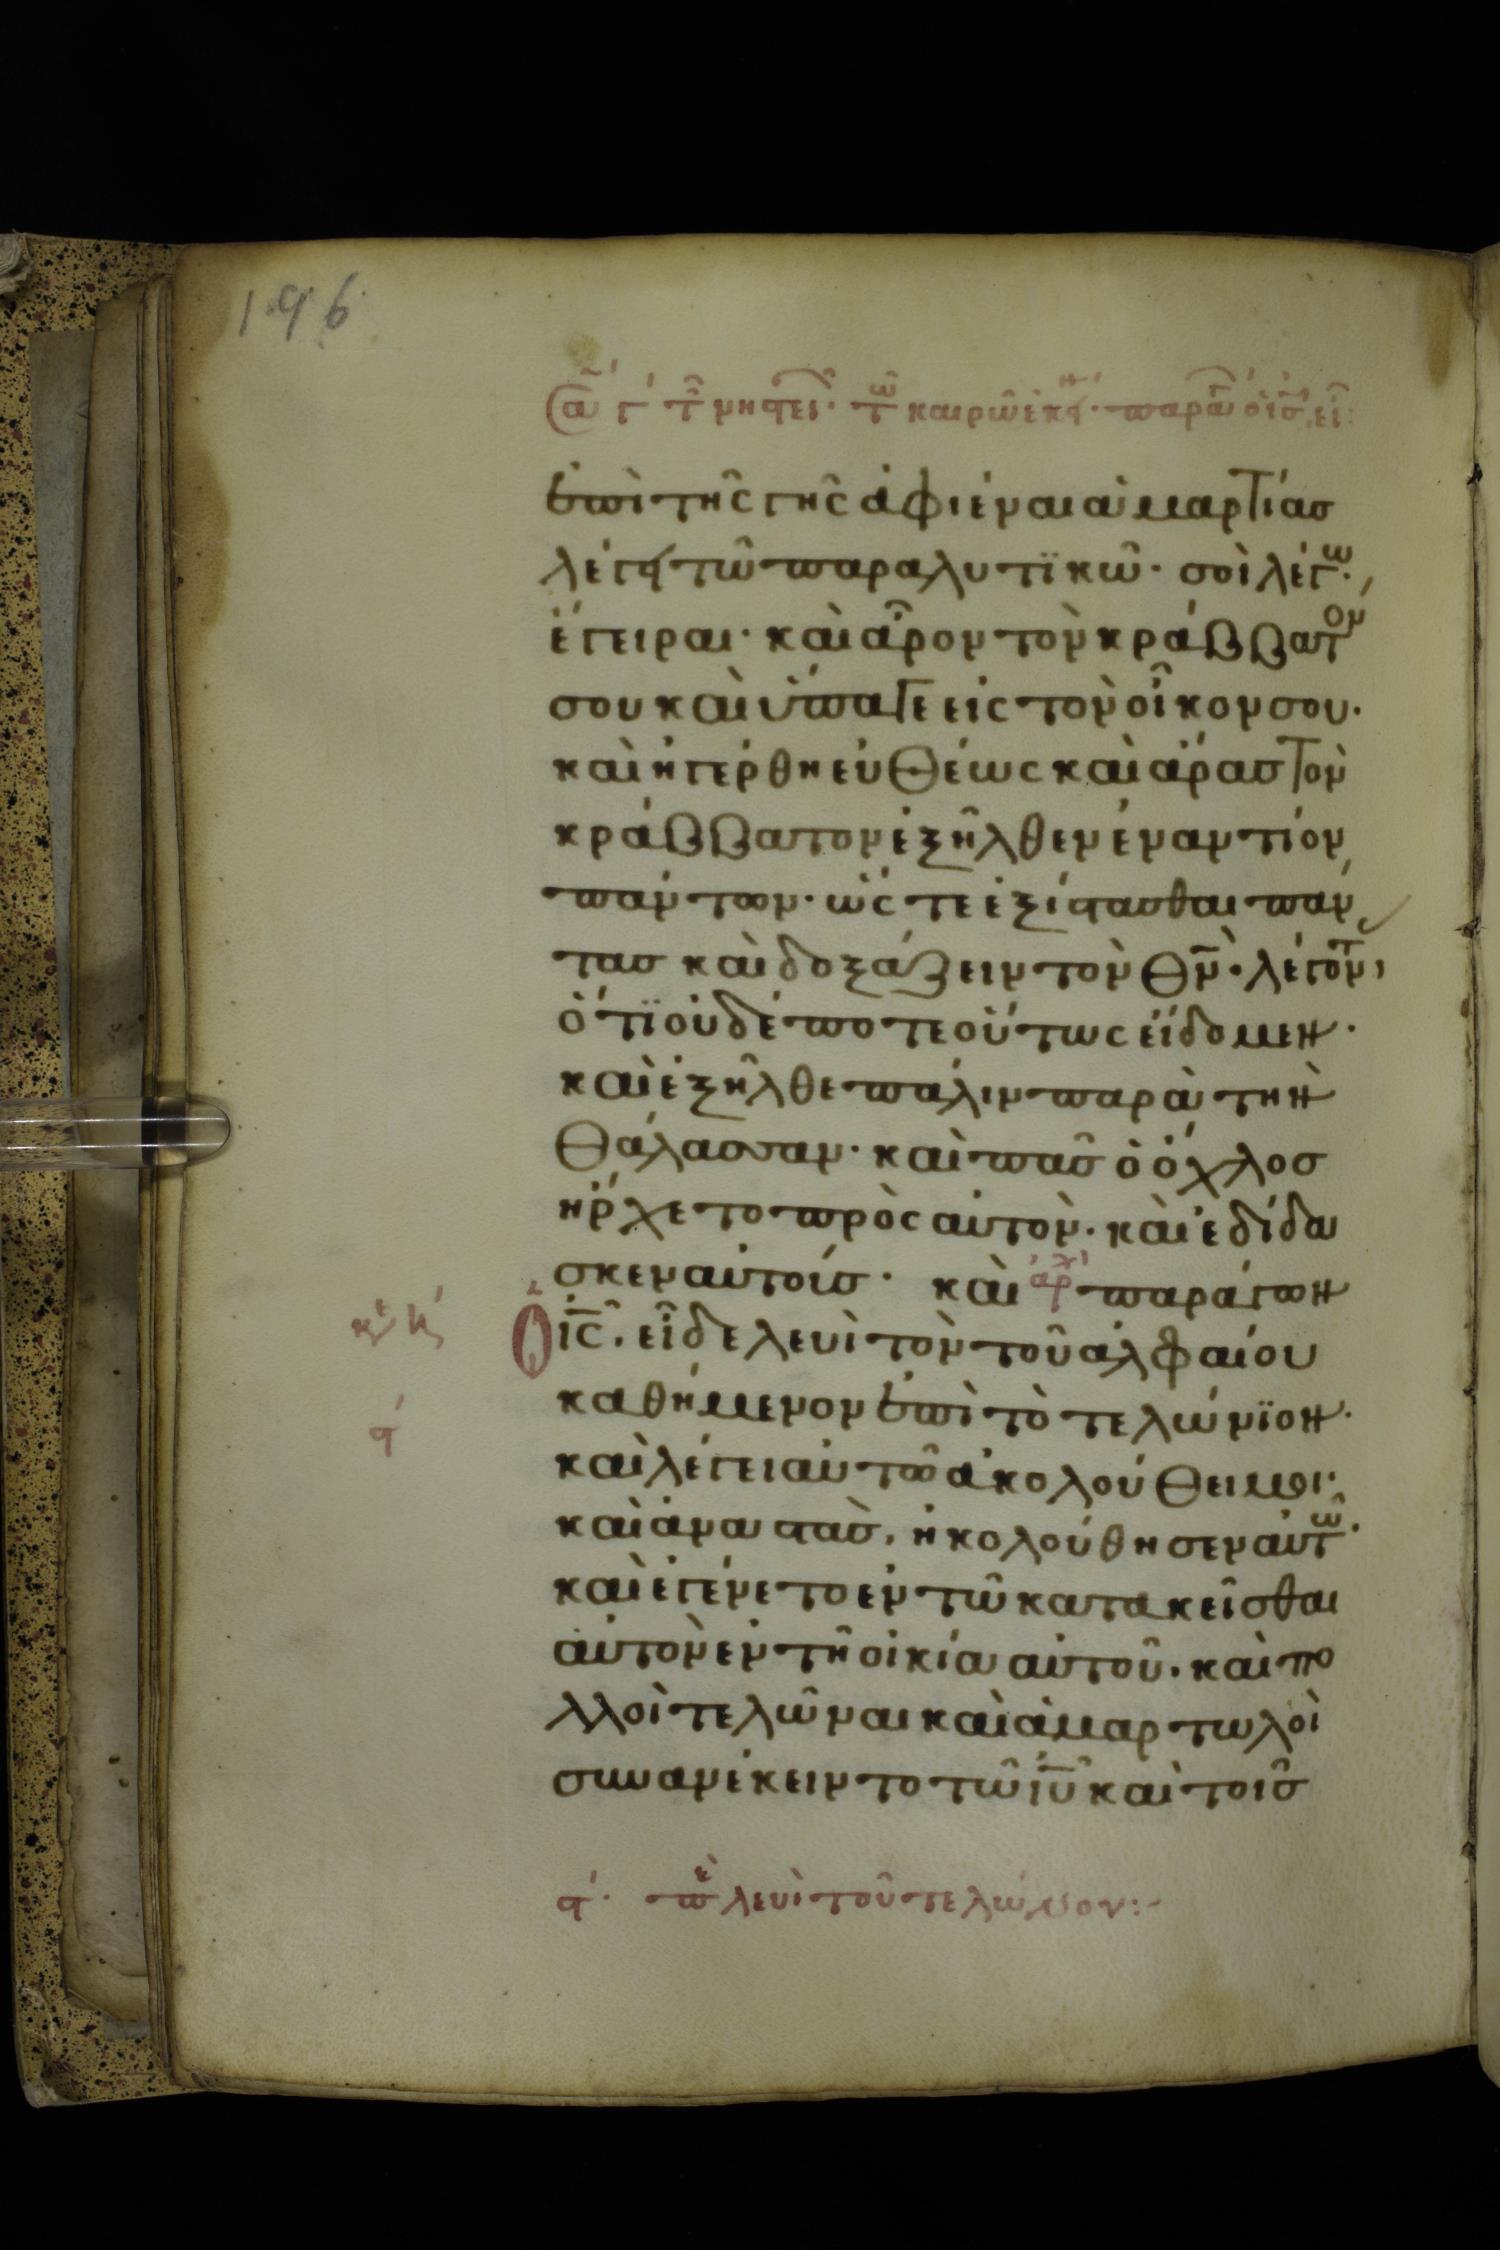 196
σα γ τ νηστει· τω καιρω εκει· παραγ ο ις ει:
ἐπὶ τῆς γῆς ἀφιέναι ἁμαρτίασ
λέγει τῶ παραλυτϊκῶ· σοὶ λέγω·
ἔγειραι· καὶ ἆρον τὸν κράββατον
σου καὶ ὕπαγε εἰς τὸν οἶκον σου·
καὶ ἠγέρθη εὐθέως καὶ ἄρασ τὸν
κράββατον ἐξῆλθεν ἐναντίον
πάντων· ὥς τε ἐξίστασθαι πάν
τασ καὶ δοξάζειν τὸν θν̅· λέγοντ
ὅτϊ οὐδέποτε οὕτως εἴδομεν·
καὶ ἐξῆλθε πάλιν παρὰ τὴν
θάλασσαν· καὶ πᾶσ ὁ ὄχλοσ
ἤρχετο πρὸς αὐτὸν· καὶ ἐδίδα
σκεν αὐτοίσ· καὶ ἀρχ παράγων
ὁ ις̅. εἶδε λευὶ τὸν τοῦ ἀλφαίου
καθήμενον ἐπὶ τὸ τελώνϊον·
καὶ λέγει αὐτῶ ἀκολούθει μοι·
καὶ ἀναστὰσ, ἠκολούθησεν αὐτῶ·
καὶ ἐγένετο ἐν τῶ κατακεῖσθαι
αὐτὸν ἐν τῆ οἰκία αὐτοῦ· καὶ πο
λλοὶ τελῶναι καὶ ἁμαρτωλοὶ
συνανέκειντο τῶ ιυ̅ καὶ τοῖσ
ϛ· πε λευὶ τοῦ τελώνου: